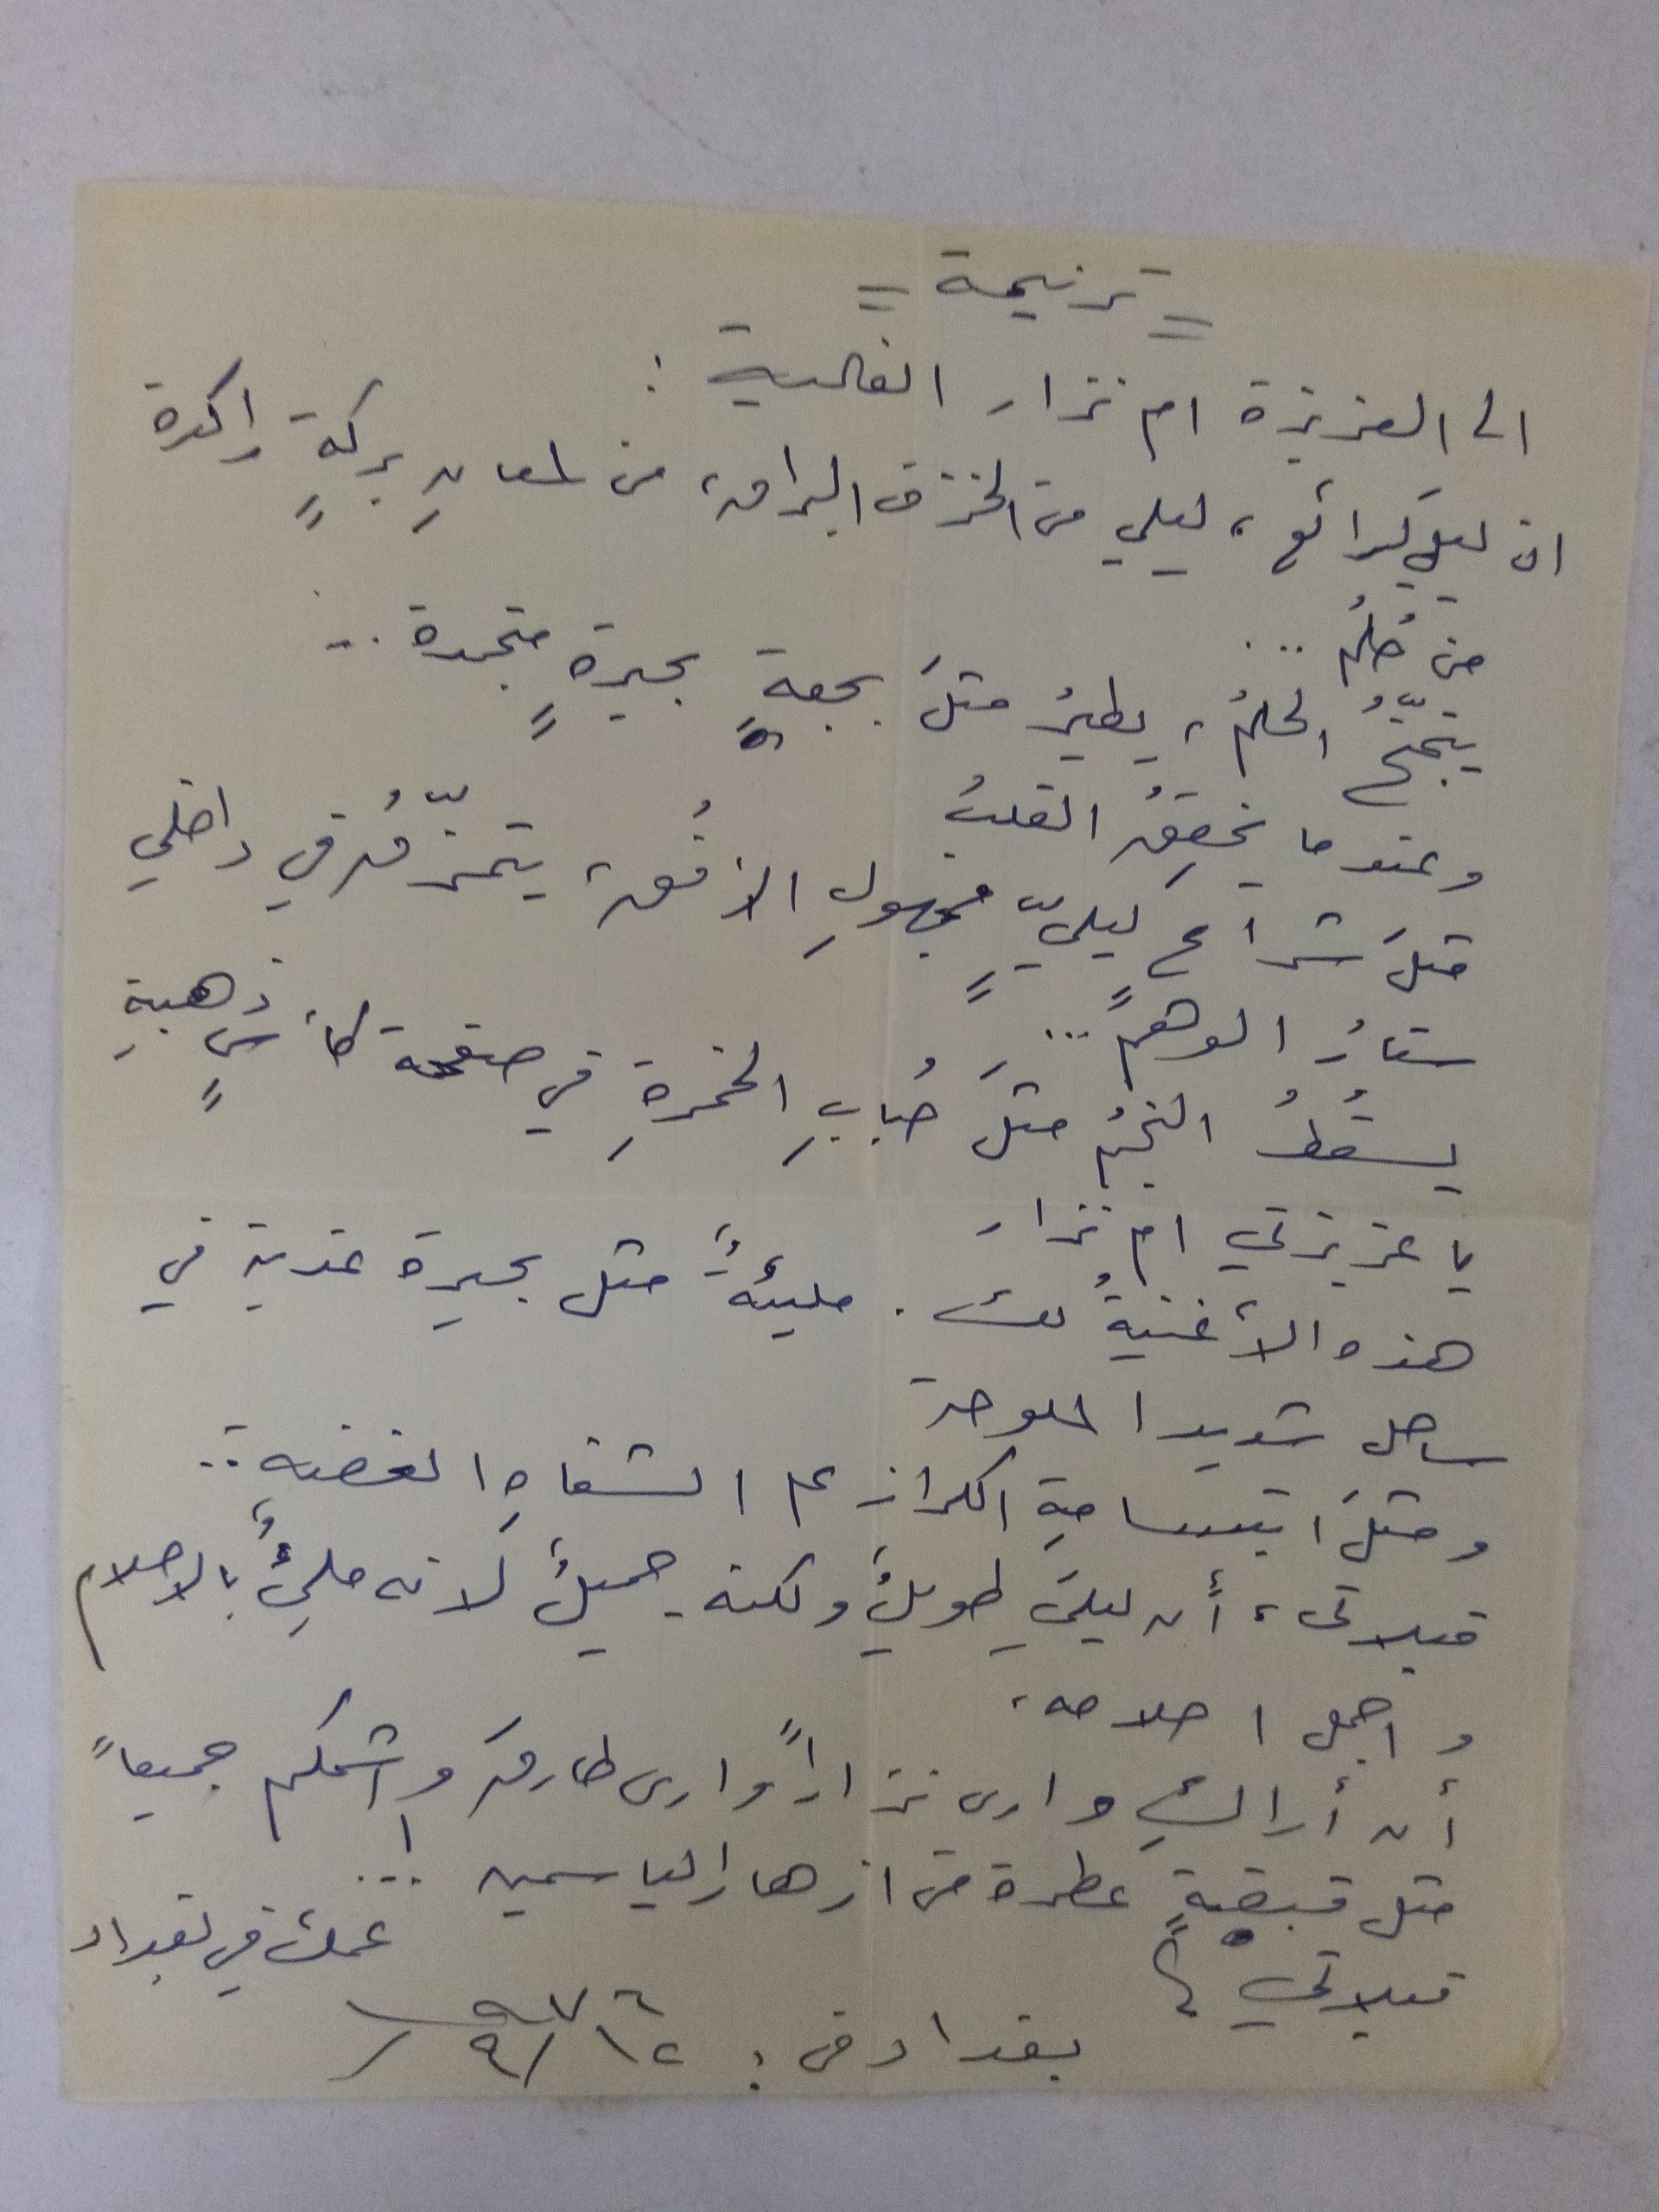 = ترنيمة =
الى العزيزة ام نزار الغالية :
ان ليلي لرائع ، ليلي من الخزف البراق، من لمعانِ بركةٍ راكدة
من حُلُم ...
يتجنّحُ الحلمُ ، يطيرُ مثلَ بجعةٍ بحيرةٍ متجمدة ...
وعندما يخفِقُ القلبُ
مثلَ شراعٍ ليليّ مجهولِ الأفُق، يتمزّقُ في داخلي
ستارُ الوهمِ ...
يسقُطُ النجمُ مثلَ حُبابِ الخمرةِ في صفحة كأسٍ ذهبيةِ
يا عزيزتي ام نزار
هذه الأغنيةُ لك . مليئةٌ مثل بحيرة عذبة في
ساحل شديد الملوحة
ومثلَ ابتسامةِ الكراز على الشفاهِ الغضةِ ..
قبلاتي ، أن ليليَ طويلٌ ولكنه جميلٌ لانه مليءٌ بالاحلام
واجمل احلامه ،
أن أراكِ وارى نزاراً وارى طارقَ واشمكم جميعاً
مثل قبضةٍ عطرة من ازهار الياسمين ...!
قبلاتي
عمك في بغداد
بغداد في : ١٢/٩/١٩٧٦